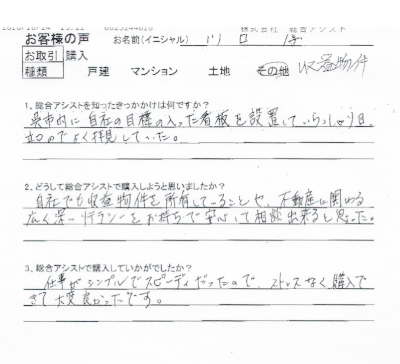 株式会社 総合アシスト
お客様の声 お名前(イニシャル)
お取引 購入
種類 戸建 マンション 土地 その他 収益物件
1、総合アシストを知ったきっかけは何ですか?
呉市内に自社の目標の入った看板を設置していらっしゃり目
立つのでよく拝見していた。
2、どうして総合アシストで購入しようと思いましたか?
自社でも収益物件を所有していることや、不動産に関わる
広く深いリテラシーをお持ちで安心して相談出来ると思った。
3、総合アシストで購入していかがでしたか?
仕事がシンプルでスピーディだったので、ストレスなく購入で
きて大変良かったです。